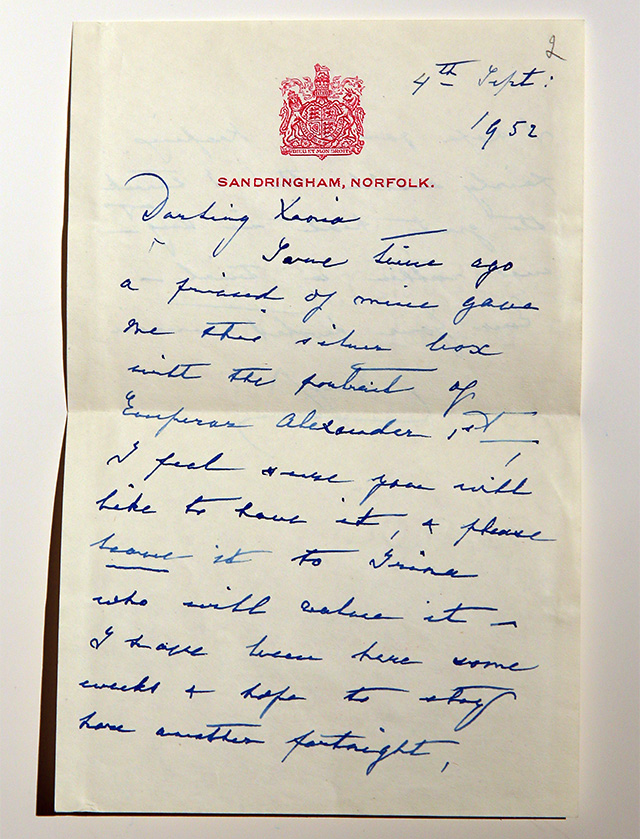 2
4th Sept:
1952
DIEU ET MON DROIT
SANDRINGHAM, NORFOLK.
Darling Xenia
Some time ago
a friend of mine gave
me this silver box
with the portrait of
Emperor Alexander 1st
I feel sure you will
like to have it, & please
leave it to Irina
who will value it –
I have been here some
weeks & hope to stay
here another fortnight,